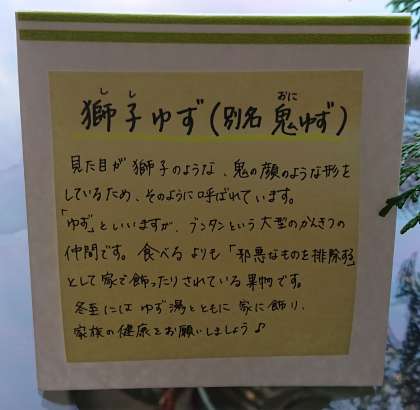 獅子ゆず(別名 鬼ゆず)
見た目が獅子のような、鬼の顔のような形を
しているため、そのように呼ばれています。
「ゆず」といいますが、ブンタンという大型のかんきつの
仲間です。食べるよりも「邪悪なものを排除する」
として家で飾ったりされている果物です。
冬至にはゆず湯とともに家に飾り、
家族の健康をお願いしましょう♪